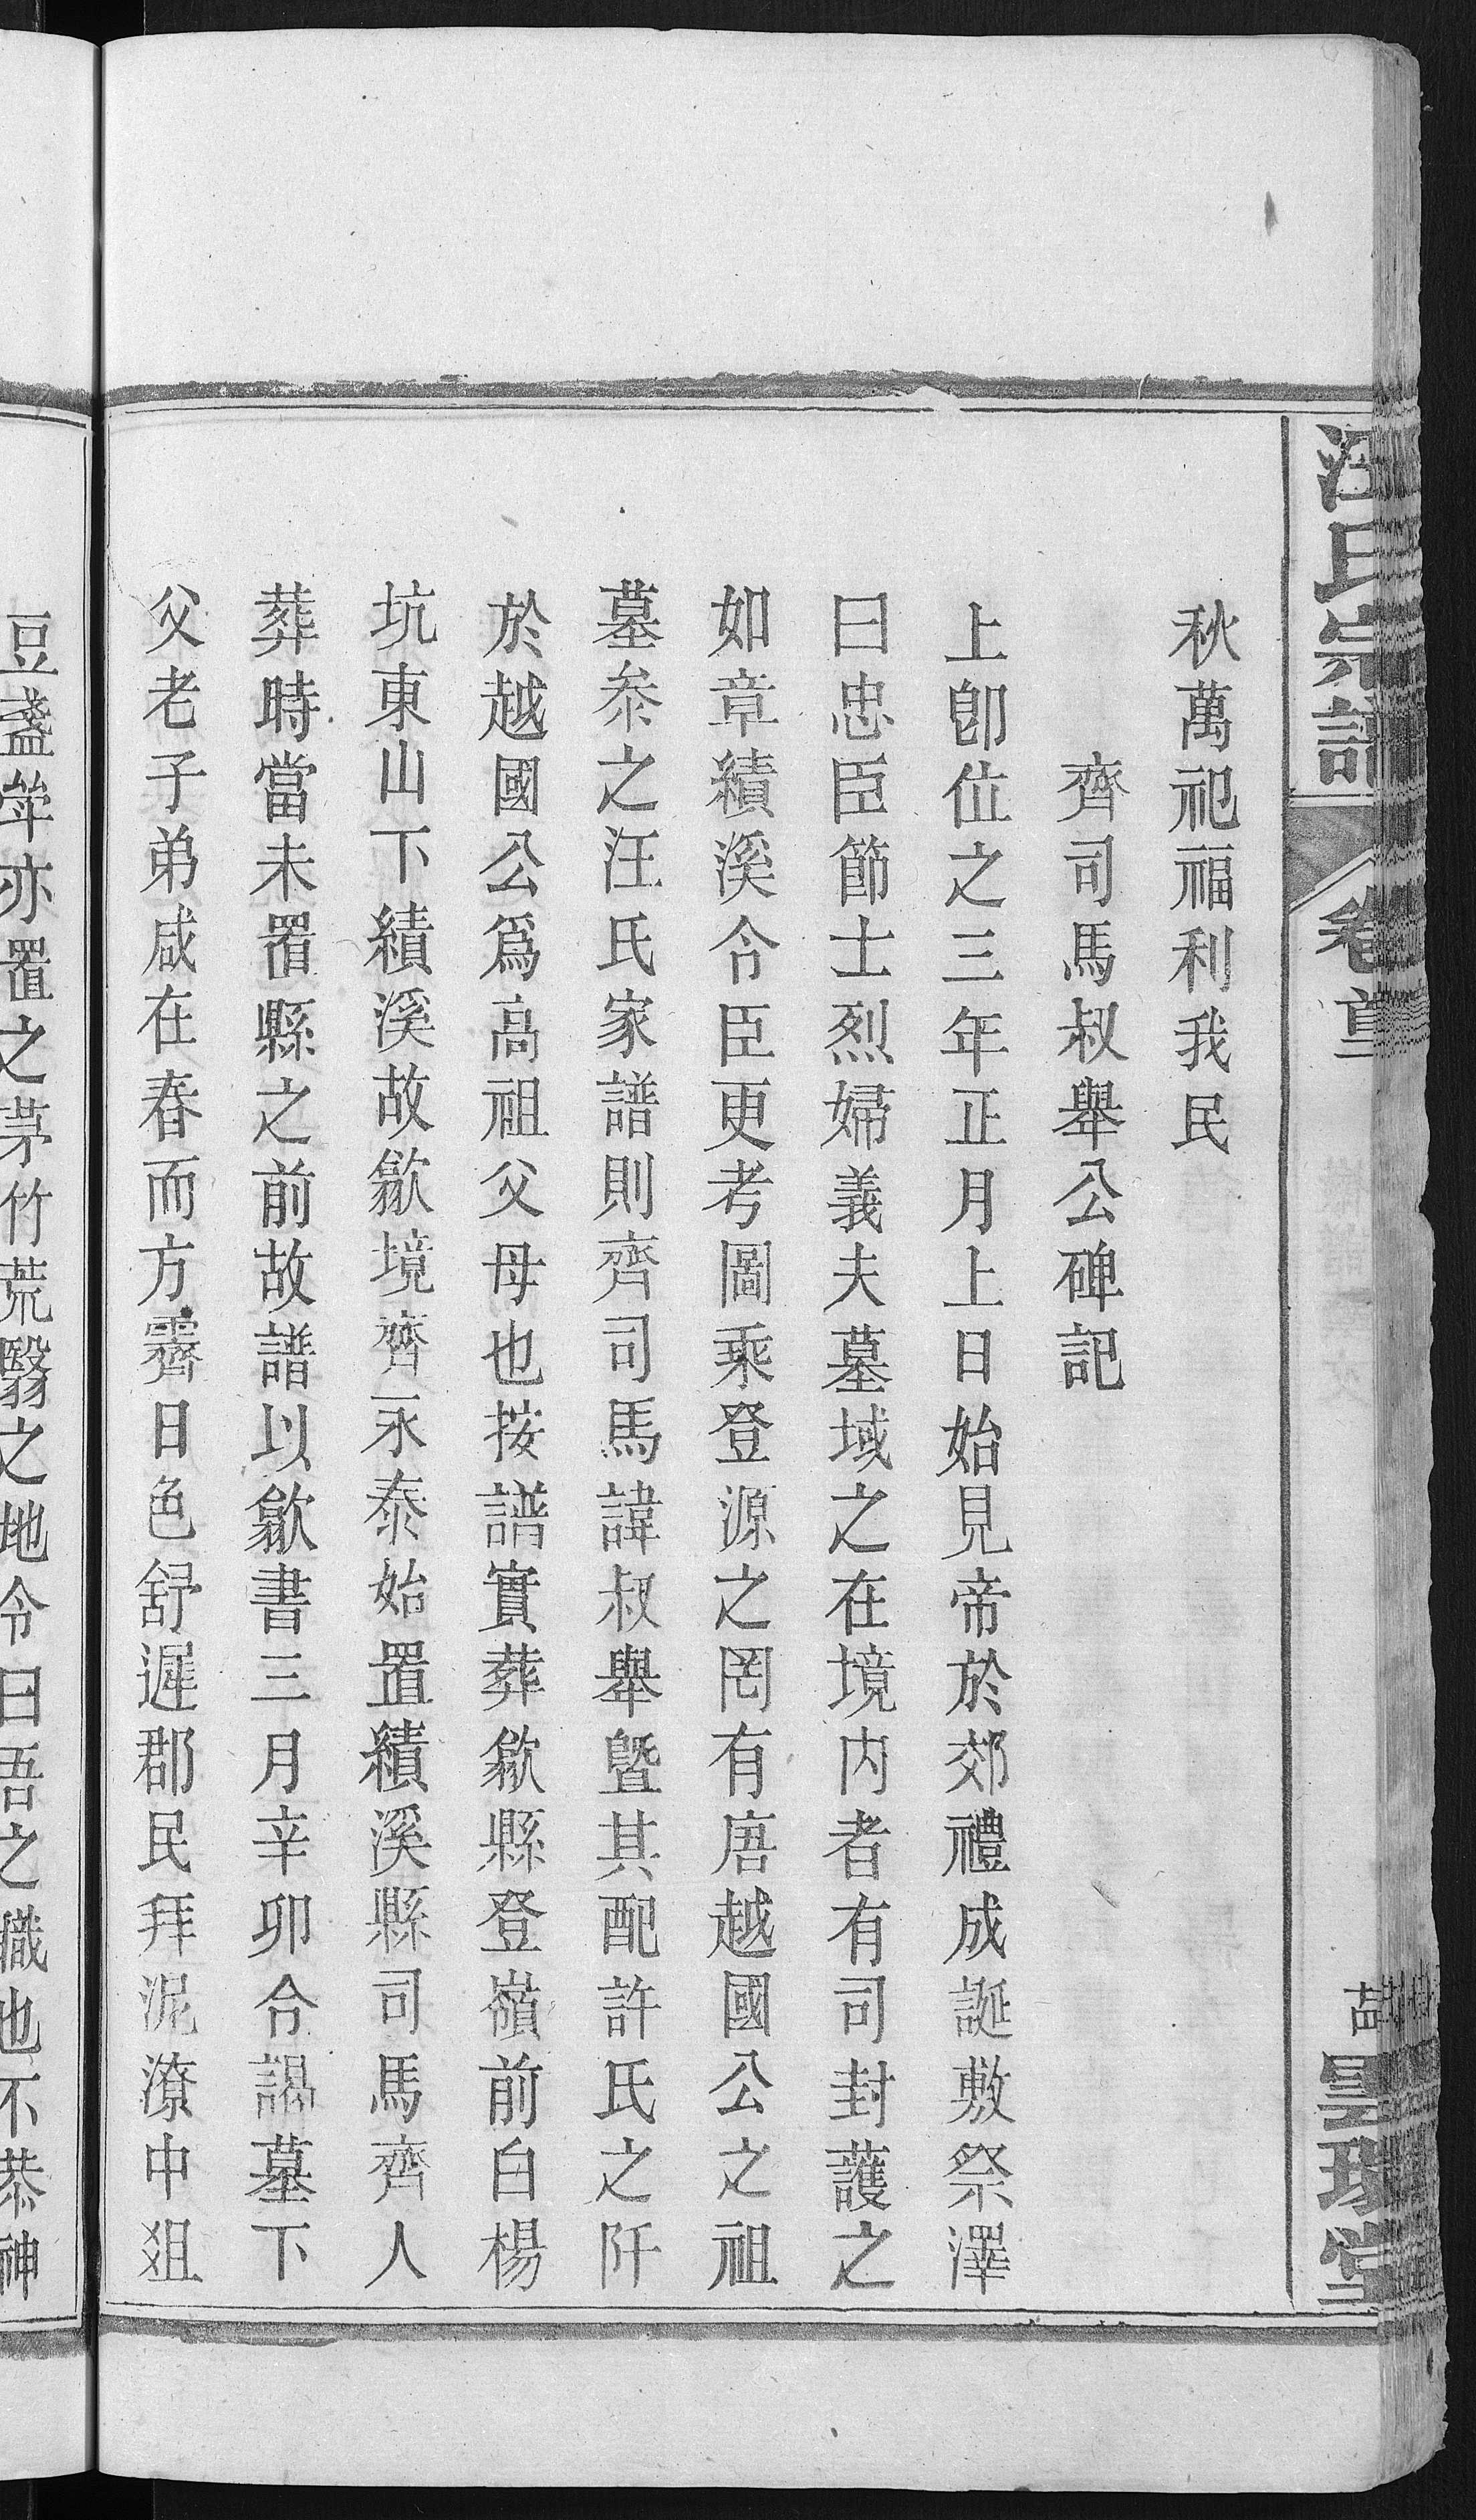 汪氏宗譜
卷首
曇瑞堂
秋萬祀福利我民
齊司馬叔舉公碑記
上卽位之三年正月上日始見帝於郊禮成誕敷祭澤
曰忠臣節士烈婦義夫墓域之在境内者有司封護之
如章績溪令臣更考圖乘登源之罔有唐越國公之祖
墓叅之汪氏家譜則齊司馬諱叔舉曁其配許氏之阡
於越國公爲高祖父母也按譜實葬歙縣登嶺前白楊
坑東山下績溪故歙境齊永泰始置績溪縣司馬齊人
葬時當未置縣之前故譜以歙書三月辛卯令謁墓下
父老子弟咸在春而方霽日色舒遲郡民拜泥潦中俎
豆盞斚亦置之茅竹荒翳之地令曰吾之職也不恭神